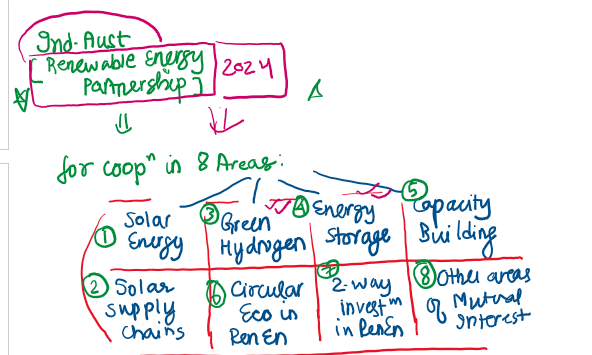 Ind-Aust
[Renewable Energy
Partnership]
2024
for coopⁿ in 8 Areas:
① Solar
Energy
③ Green
Hydrogen
④ Energy
Storage
⑤ Capacity
Building
② Solar
supply
chains
⑥ Circular
Eco in
RenEn
⑦ 2-way
investᵐ
in RenEn
⑧ Other areas
of Mutual
Interest